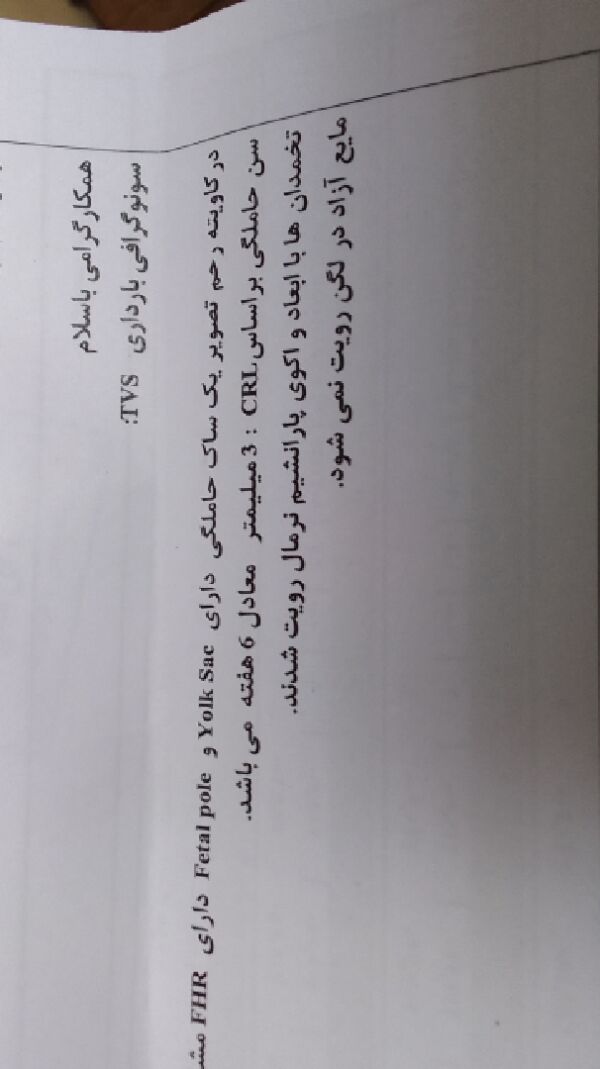 همکارگرامی باسلام
سونوگرافی بارداری TVS:
در کاویته رحم تصویر یک ساک حاملگی دارای Yolk Sac و Fetal pole دارای FHR
سن حاملگی براساس CRL : 3 میلیمتر معادل 6 هفته می باشد.
تخمدان ها با ابعاد و اکوی پارانشیم نرمال رویت شدند.
مایع آزاد در لگن رویت نمی شود.